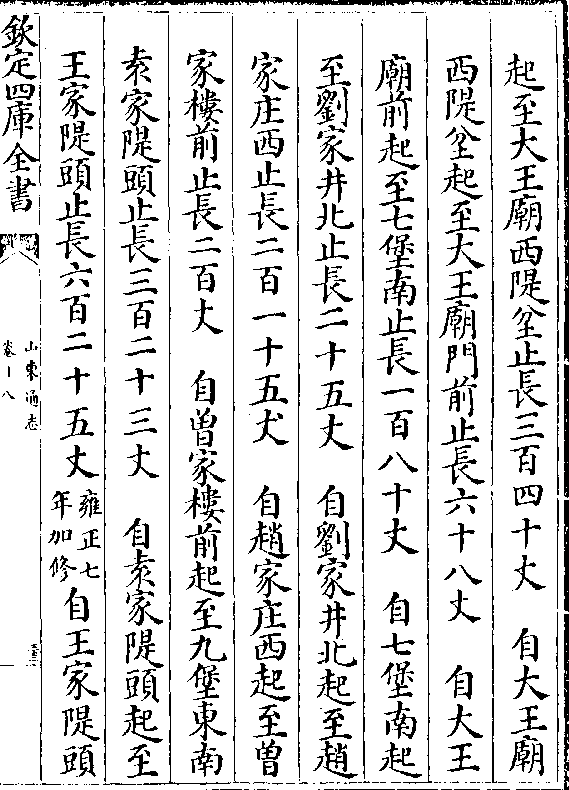 起至大王廟西隄坌止長三百四十丈　自大王廟
西隄坌起至大王廟門前止長六十八丈　自大王
廟前起至七堡南止長一百八十丈　自七堡南起
至劉家井北止長二十五丈　自劉家井北起至趙
家庄西止長二百一十五丈　自趙家庄西起至曽
家樓前止長二百丈　自曽家樓前起至九堡東南
袁家隄頭止長三百二十三丈　自袁家隄頭起至
王家隄頭止長六百二十五丈雍正七年加修自王家隄頭
欽定四庫全書
山東通志
卷十八